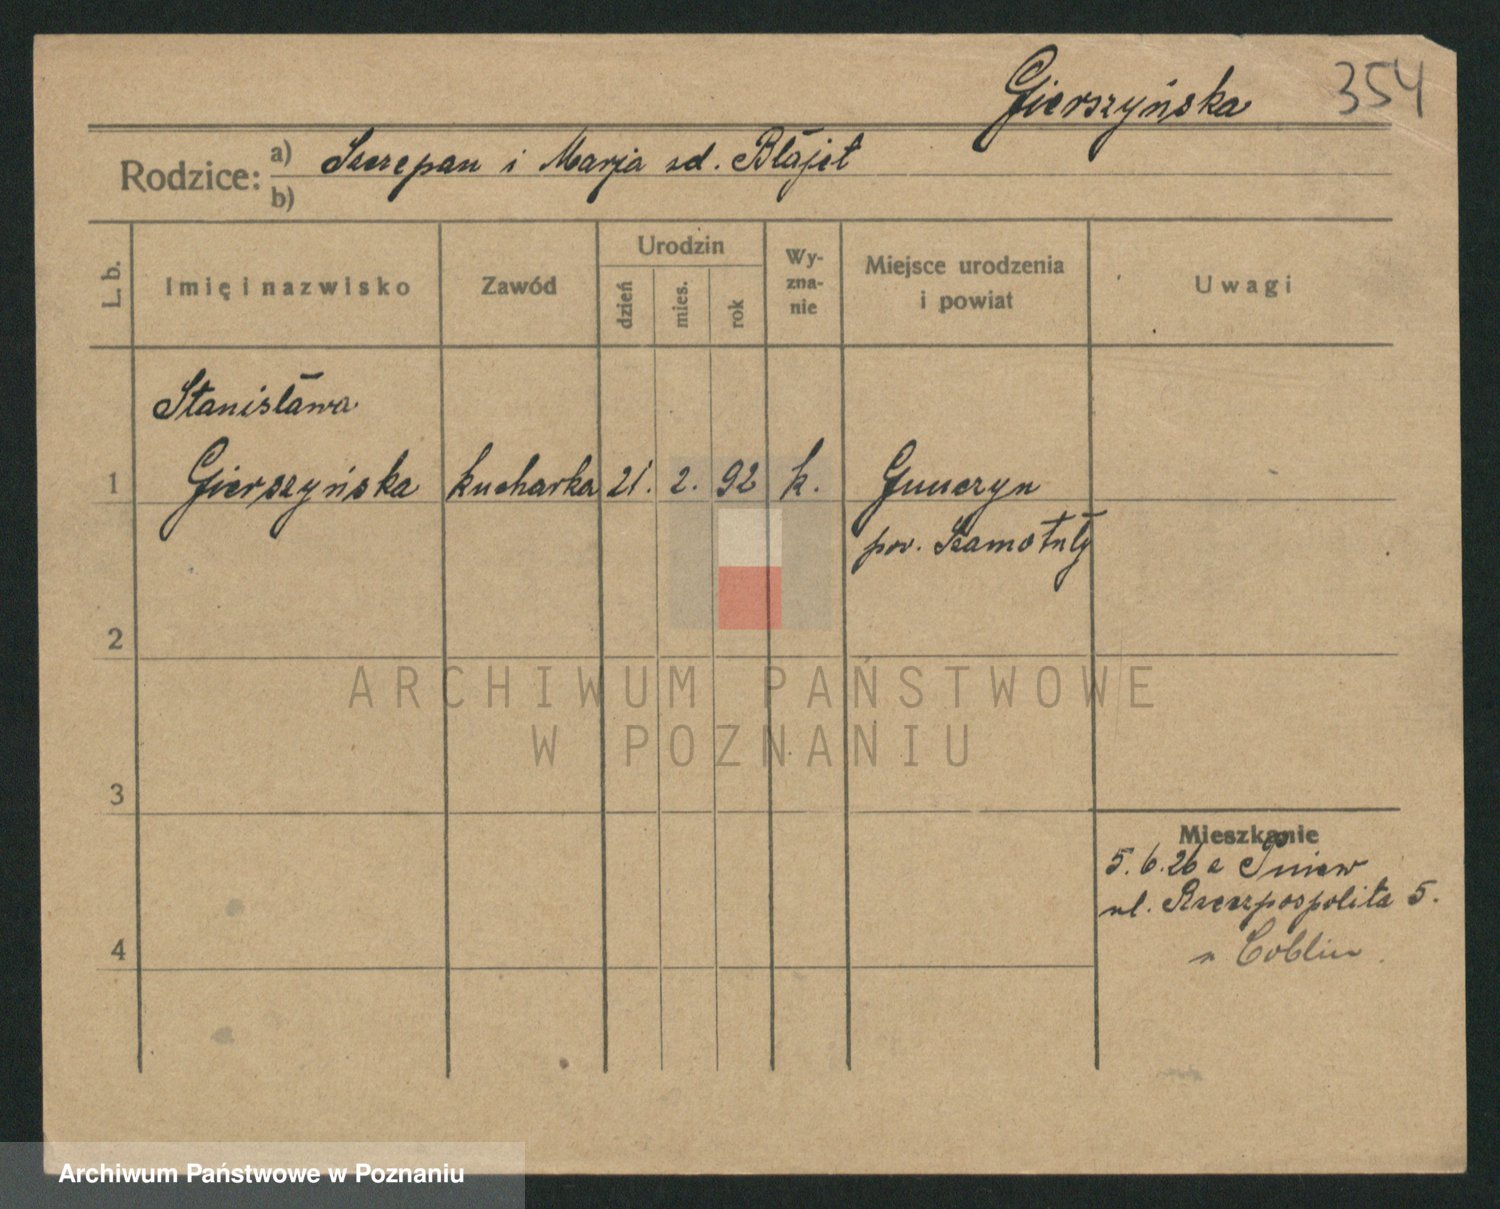 Gierszyńska 354
Rodzice: a) Szczepan i Marja zd. Błajet
b)
L. b.
Imię i nazwisko
Zawód
Urodzin
dzień
mies.
rok
Wy-
zna-
nie
Miejsce urodzenia
i powiat
Uwagi
Stanisława
1 Gierszyńska kucharka 21. 2. 92 k.
pow. Szamotuły
2
3
4
Mieszkanie
5. 6. 26 Pniew
ul. Rzeczpospolita 5.
ARCHIWUM PAŃSTWOWE
W POZNANIU
Archiwum Państwowe w Poznaniu